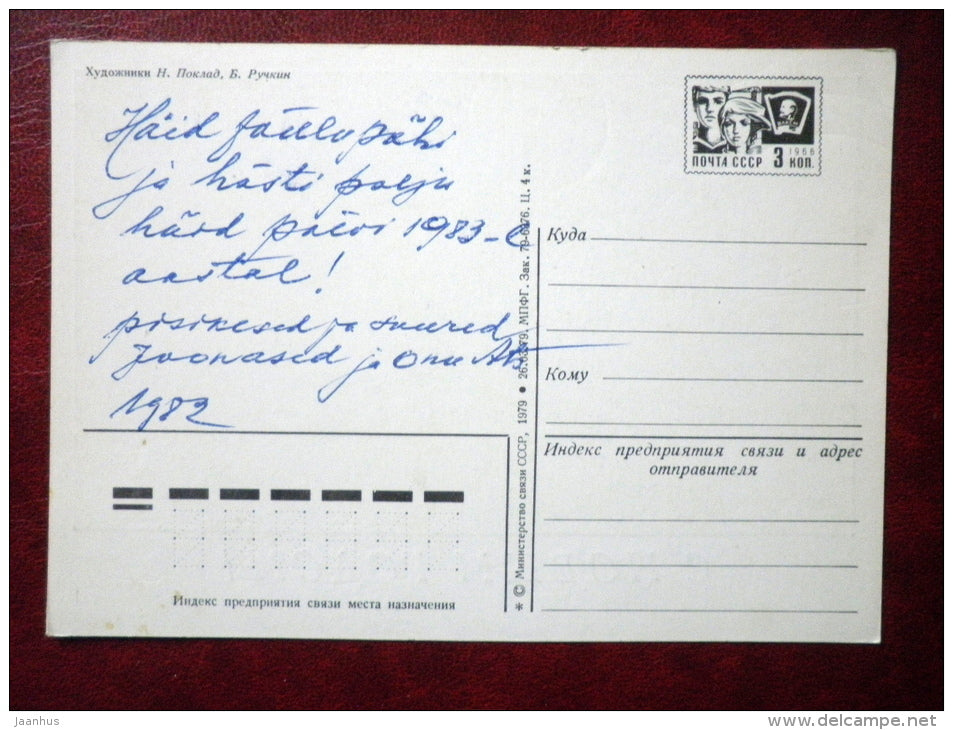 Художники Н. Поклад, Б. Ручкин
Häid jõulupühi
ja hästi palju
häid päevi 1983-l
aastal!
pisikesed ja suured
Joonased ja onu
1982
ПОЧТА СССР 3 КОП.
1966
Куда
Кому
Индекс предприятия связи и адрес
отправителя
Индекс предприятия связи места назначения
* © Министерство связи СССР, 1979 ● 26.03.79. МПФГ. Зак. 79-6476. Ц. 4 к.
jaanhus
www.delcampe.net